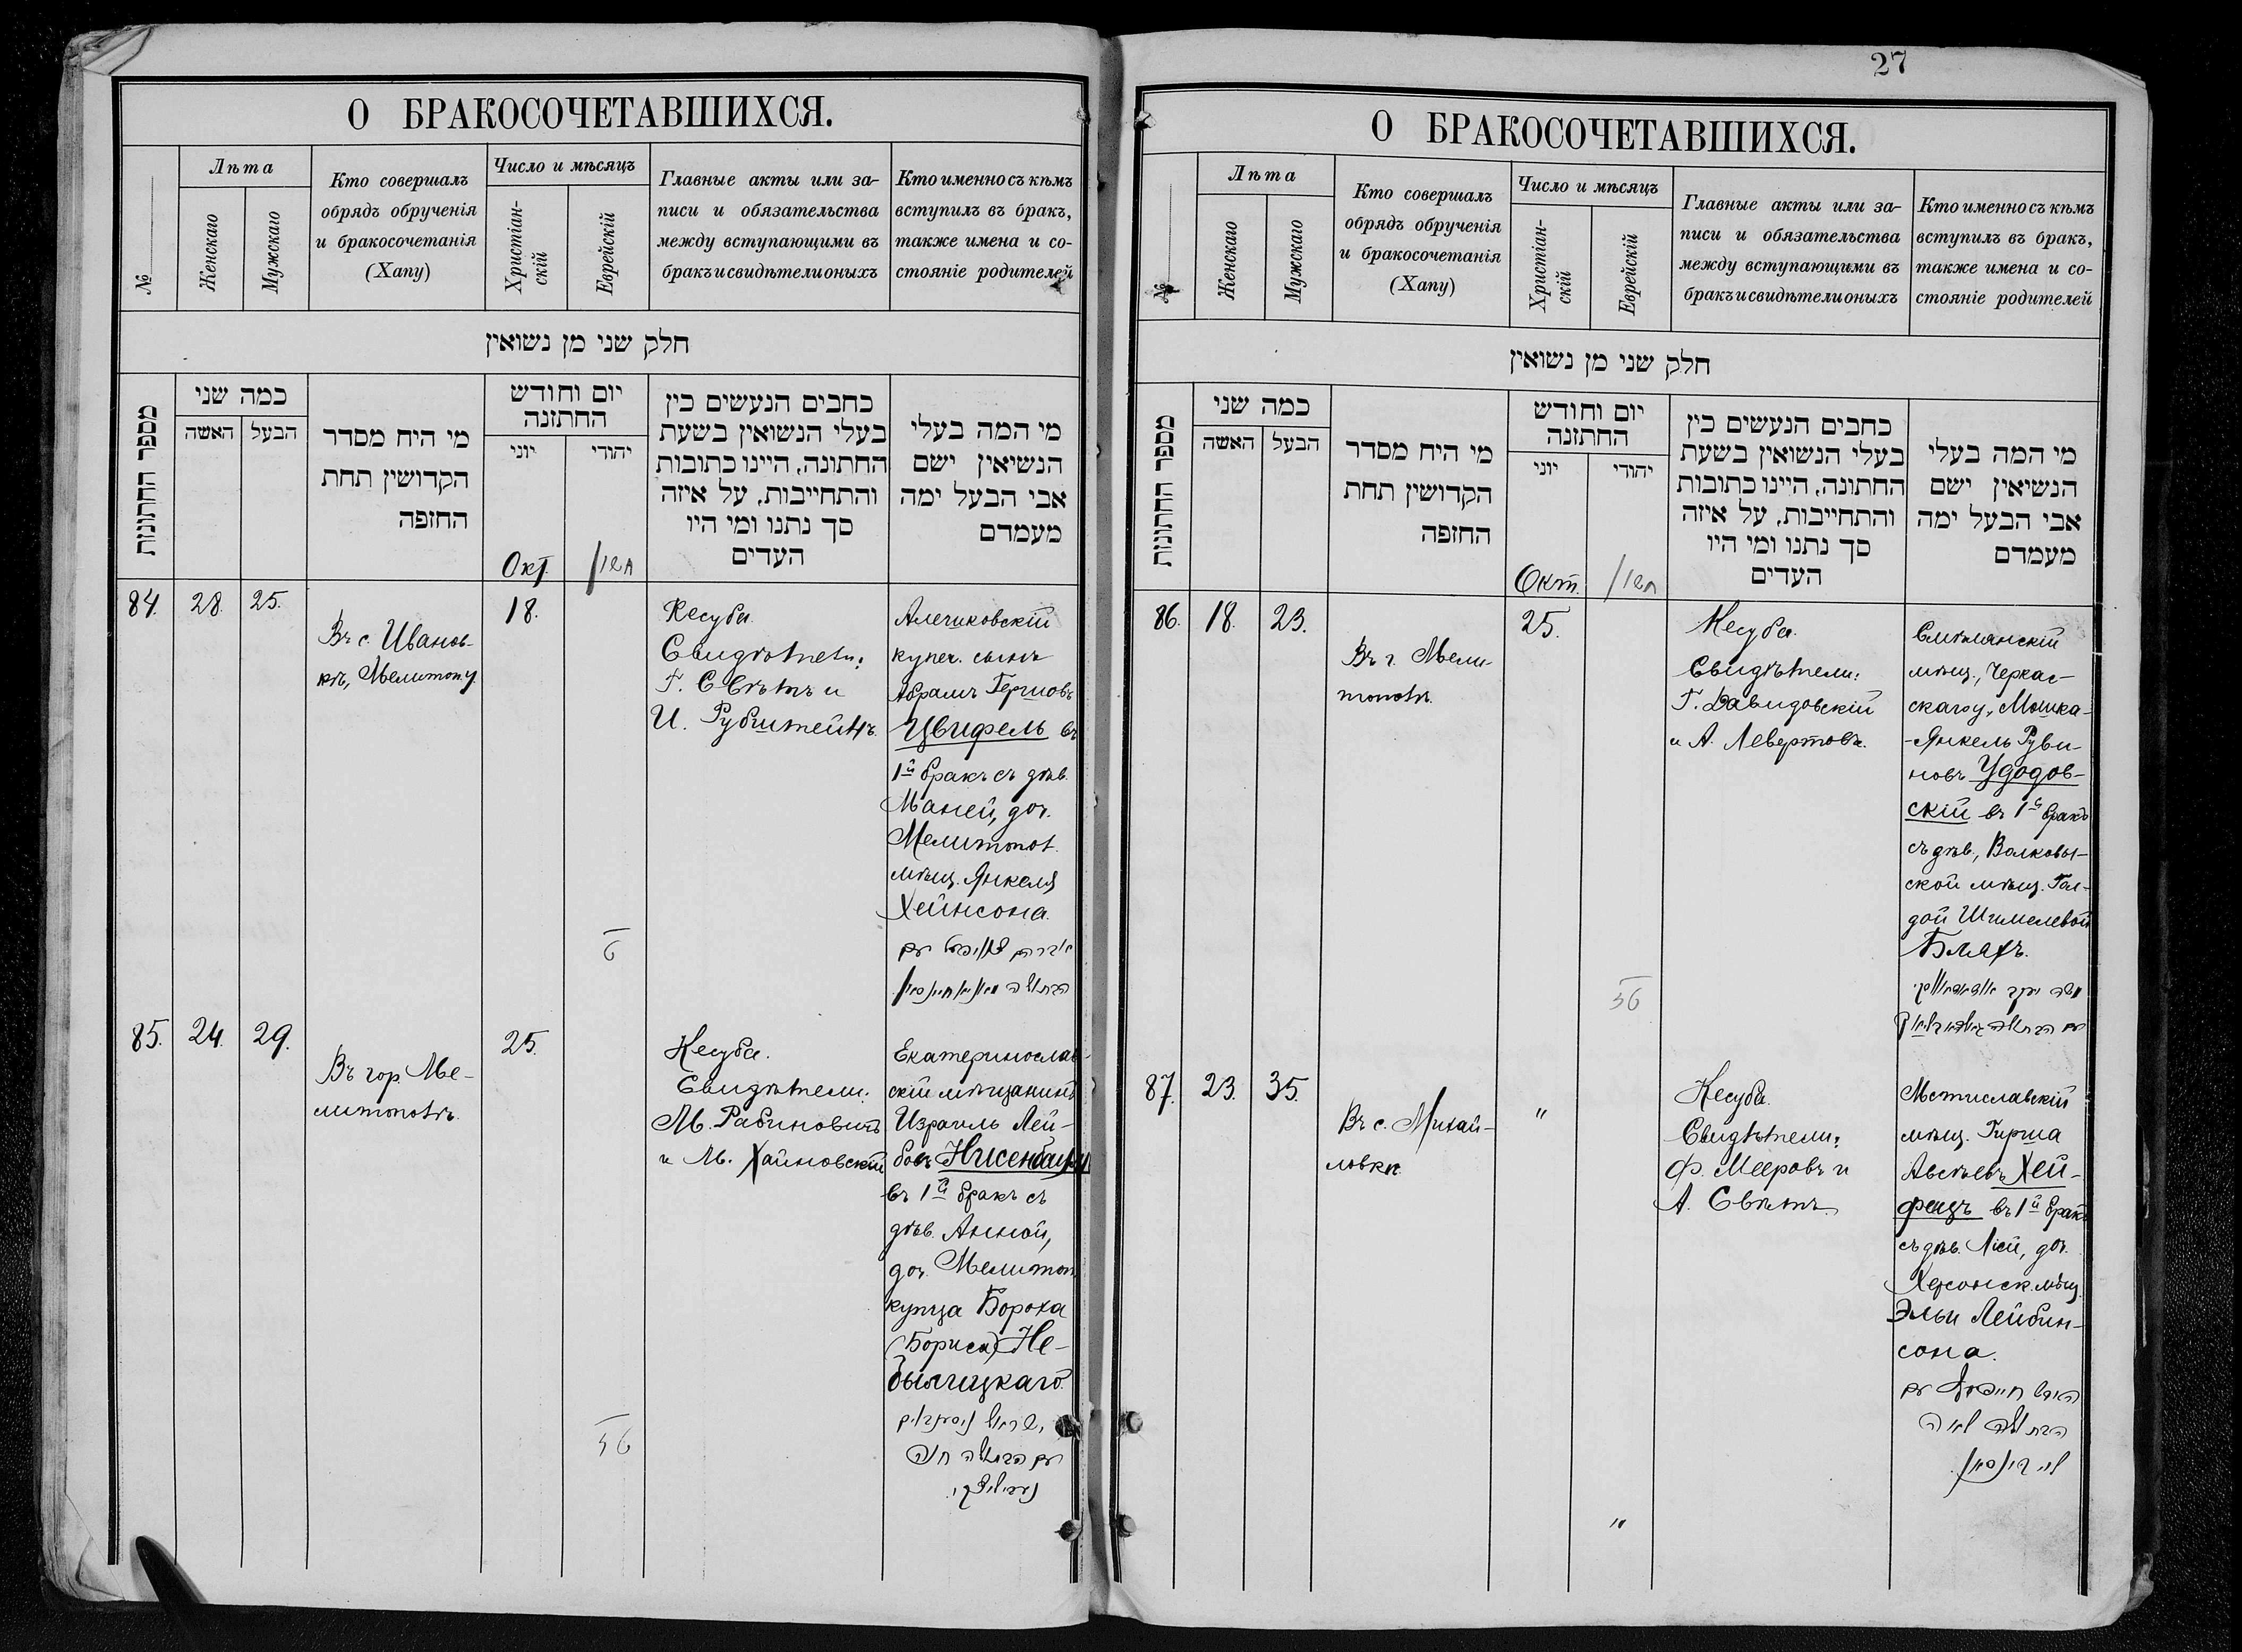 О БРАКОСОЧЕТАВШИХСЯ.
№
Лѣта
Женскаго
Мужскаго
Кто совершалъ
обрядъ обрученія
и бракосочетанія
(Хапу)
Число и мѣсяцъ
Христіан-
скій
Еврейскій
Главные акты или за-
писи и обязательства
между вступающими въ
бракъ и свидѣтели оныхъ
Кто именно съ кѣмъ
вступилъ въ бракъ,
также имена и со-
стояніе родителей
חלק שני מן נשואין
מספר החתונות
כמה שני
האשה
הבעל
מי היח מסדר
הקדושין תחת
החופה
יום וחודש
החתונה
יוני
יהודי
Окт.
כחבים הנעשים כין
בעלי הנשואין בשעת
החתונה, היינו כתובות
והתחייבות, על איזה
סך נתנו ומי היו
העדים
מי המה בעלי
הנשיאין ישם
אבי הבעל ימה
מעמדם
84. 28. 25.
Въ с. Иванов-
кѣ, Мелитоп. у.
18.
Кесуба.
Свидѣтели:
Г. Свѣтъ и
И. Рубштейнъ.
Алешковскій
купеч. сынъ
Абрамъ Гершовъ
Цвифель въ
1й бракъ съ дѣв.
Маней, доч.
Мелитопол.
мѣщ. Янкеля
Хейнсона.
ו
85. 24. 29.
Въ гор. Ме-
литополѣ.
25.
Кесуба.
Свидѣтели:
М. Рабиновичъ
и М. Хайновскій
Екатеринослав-
скій мѣщанинъ
Израиль Лей-
бовъ Нисенбаумъ
въ 1й бракъ съ
дѣв. Анной,
доч. Мелитоп.
купца Бороха
(Бориса) Не-
былицкаго.
ישראל ניסענבוים
עם הבתולה חנה
27
О БРАКОСОЧЕТАВШИХСЯ.
№
Лѣта
Женскаго
Мужскаго
Кто совершалъ
обрядъ обрученія
и бракосочетанія
(Хапу)
Число и мѣсяцъ
Христіан-
скій
Еврейскій
Главные акты или за-
писи и обязательства
между вступающими въ
бракъ и свидѣтели оныхъ
Кто именно съ кѣмъ
вступилъ въ бракъ,
также имена и со-
стояніе родителей
חלק שני מן נשואין
מספר החתונות
כמה שני
האשה
הבעל
מי היח מסדר
הקדושין תחת
החופה
יום וחודש
החתונה
יוני
יהודי
Окт.
כחבים הנעשים כין
בעלי הנשואין בשעת
החתונה, היינו כתובות
והתחייבות, על איזה
סך נתנו ומי היו
העדים
מי המה בעלי
הנשיאין ישם
אבי הבעל ימה
מעמדם
86. 18. 23.
Въ г. Мели-
тополѣ.
25.
Кесуба.
Свидѣтели:
Г. Давидовскій
и А. Левертовъ.
Смѣлянскій
мѣщ., Черкас-
скаго у., Мошка-
-Янкель Руви-
новъ Удодов-
скій въ 1й бракъ
съ дѣв., Волковы-
ской мѣщ. Гол-
дой Шмелевой
Бляхъ.
87. 23. 35.
Въ с. Михай-
ловкѣ
"
Кесуба.
Свидѣтели:
Ф. Мееровъ и
А. Свѣтъ.
Мстиславскій
мѣщ. Гирша
Авсѣевъ Хей-
фецъ въ 1й бракъ
съ дѣв. Ліей, доч.
Херсонск. мѣщ.
Эльи Лейбин-
сона.
הירש חייפעץ עם
הבתולה ליאה
לייבינסאן.
"